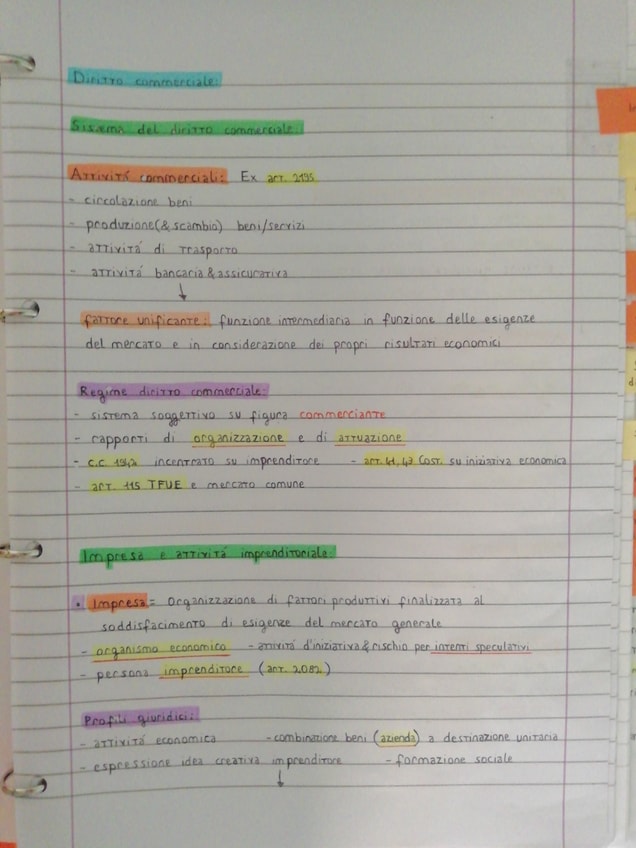 Diritto commerciale:
Sistema del diritto commerciale:
Attivitá commerciali: Ex art. 2195
- circolazione beni
- produzione(& scambio) beni/servizi
- attivitá di trasporto
- attivitá bancaria & assicurativa
↓
fattore unificante: funzione intermediaria in funzione delle esigenze
del mercato e in considerazione dei propri risultati economici
Regime diritto commerciale:
- sistema soggettivo su figura commerciante
- rapporti di organizzazione e di attuazione
- c.c. 1942 incentrato su imprenditore - art. 41, 43 Cost. su iniziativa economica
- art. 115 TFUE e mercato comune
Impresa e attivitá imprenditoriale:
• Impresa = Organizzazione di fattori produttivi finalizzata al
soddisfacimento di esigenze del mercato generale
- organismo economico - attivitá d'iniziativa & rischio per intenti speculativi
- persona imprenditore (art. 2082)
Profili giuridici:
- attivitá economica - combinazione beni (azienda) a destinazione unitaria
- espressione idea creativa imprenditore - formazione sociale
↓